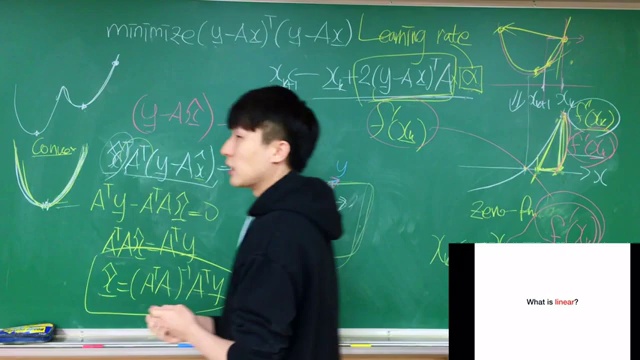 minimize (y-Ax)ᵀ(y-Ax)
Learning rate
x_{k+1} ← x_k + 2(y-Ax)ᵀA α
(y-Ax̂)
Aᵀ(y-Ax̂)=
Convex
Aᵀy-AᵀAx̂=0
AᵀAx̂=Aᵀy
x̂=(AᵀA)⁻¹Aᵀy
f'(x_k)
y
x_{k+1} x_k
f'(x_k)
f'(x_k)
x
f'(x_k)
What is linear?